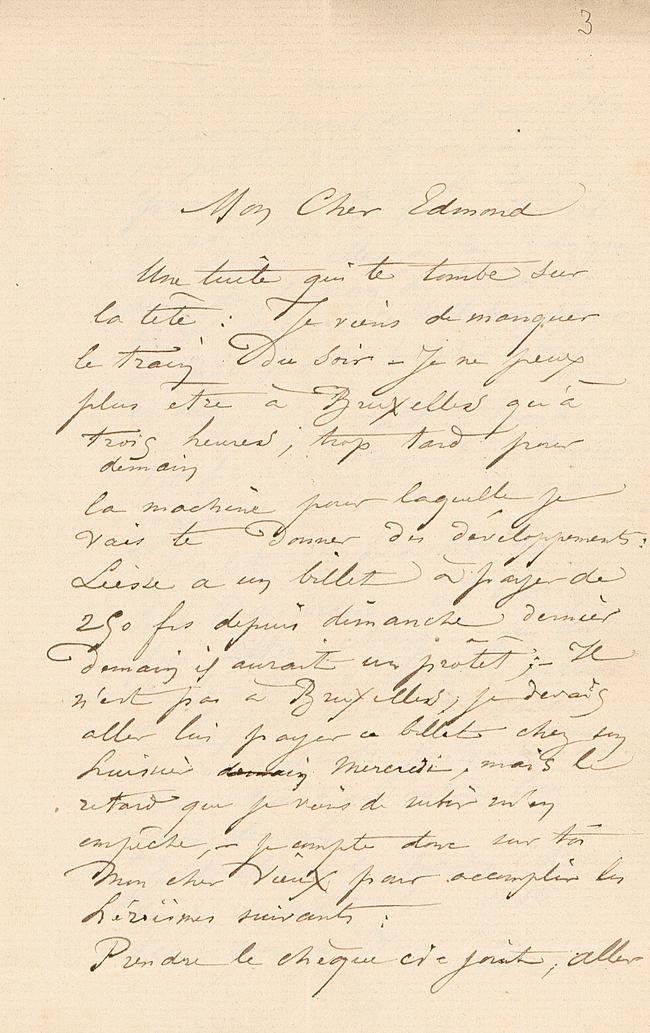 3
Mon Cher Edmond
Une tuile qui te tombe sur
la tête : Je viens de manquer
le train du soir - Je ne peux
plus etre à Bruxelles qu'à
trois heures ; trop tard pour
demain
la machine pour laquelle je
vais te donner des développements :
Liesse a un billet à payer de
250 frs depuis dimanche dernier
Demain il aurait un protêt ; - Il
n'est pas à Bruxelles, je devais
aller lui payer ce billet chez son
huissier demain Mercredi, mais le
retard que je viens de subir m'en
empêche, - je compte donc sur toi
Mon cher Vieux pour accomplir les
héroïsmes suivants :
Prendre le chèque ci-joint, aller